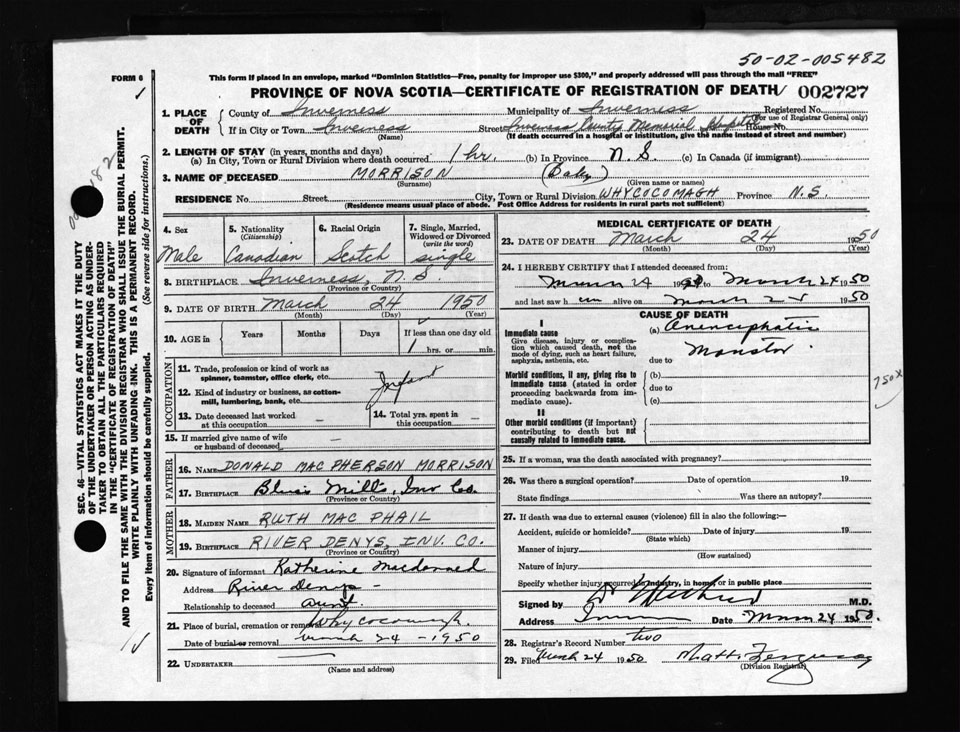 50-02-005482
FORM 6
This form if placed in an envelope, marked "Dominion Statistics—Free, penalty for improper use $300," and properly addressed will pass through the mail "FREE"
PROVINCE OF NOVA SCOTIA—CERTIFICATE OF REGISTRATION OF DEATH 002727
1. PLACE OF DEATH
County of Inverness Municipality of Inverness Registered No.
(For use of Registrar General only)
If in City or Town Inverness Street Inverness County Memorial Hospital House No.
(Name) (If death occurred in a hospital or institution, give the name instead of street and number)
2. LENGTH OF STAY (in years, months and days)
(a) In City, Town or Rural Division where death occurred 1 hr. (b) In Province N. S. (c) In Canada (if immigrant)
3. NAME OF DECEASED MORRISON (Baby)
(Surname) (Given name or names)
RESIDENCE No. Street City, Town or Rural Division WHYCOCOMAGH Province N.S.
(Residence means usual place of abode. Post Office Address for residents in rural parts not sufficient)
4. Sex Male
5. Nationality (Citizenship) Canadian
6. Racial Origin Scotch
7. Single, Married, Widowed or Divorced (write the word) single
8. BIRTHPLACE Inverness, N. S.
(Province or Country)
9. DATE OF BIRTH March 24 1950
(Month) (Day) (Year)
10. AGE in Years Months Days If less than one day old
1 hrs. or min.
OCCUPATION
11. Trade, profession or kind of work as spinner, teamster, office clerk, etc. Infant
12. Kind of industry or business, as cotton-mill, lumbering, bank, etc.
13. Date deceased last worked at this occupation —
14. Total yrs. spent in this occupation —
15. If married give name of wife or husband of deceased —
FATHER
16. NAME DONALD MAC PHERSON MORRISON
17. BIRTHPLACE Blues Mills, Inv Co.
(Province or Country)
MOTHER
18. MAIDEN NAME RUTH MAC PHAIL
19. BIRTHPLACE RIVER DENYS, INV. CO.
(Province or Country)
20. Signature of informant Katherine Macdonald
Address River Denys
Relationship to deceased aunt
21. Place of burial, cremation or removal Whycocomagh
Date of burial or removal March 24 - 1950
22. UNDERTAKER
(Name and address)
MEDICAL CERTIFICATE OF DEATH
23. DATE OF DEATH March 24 1950
(Month) (Day) (Year)
24. I HEREBY CERTIFY that I attended deceased from:
March 24 1950 to March 24 1950
and last saw him alive on March 24 1950
CAUSE OF DEATH
I
Immediate cause
Give disease, injury or complication which caused death, not the mode of dying, such as heart failure, asphyxia, asthenia, etc.
(a) Anencephalic
Monster
due to
Morbid conditions, if any, giving rise to immediate cause (stated in order proceeding backwards from immediate cause).
(b)
due to
(c)
750X
II
Other morbid conditions (if important) contributing to death but not causally related to immediate cause.
25. If a woman, was the death associated with pregnancy?
26. Was there a surgical operation? Date of operation 19
State findings Was there an autopsy?
27. If death was due to external causes (violence) fill in also the following:—
Accident, suicide or homicide? Date of injury 19
(State which)
Manner of injury
(How sustained)
Nature of injury
Specify whether injury occurred in industry, in home, or in public place
Signed by M.D.
Address Date March 24 1950.
28. Registrar's Record Number two
29. Filed March 24 1950 Ferguson
(Division Registrar)
SEC. 46—VITAL STATISTICS ACT MAKES IT THE DUTY
OF THE UNDERTAKER OR PERSON ACTING AS UNDER-
TAKER TO OBTAIN ALL THE PARTICULARS REQUIRED
IN THE "CERTIFICATE OF REGISTRATION OF DEATH"
AND TO FILE THE SAME WITH THE DIVISION REGISTRAR WHO SHALL ISSUE THE BURIAL PERMIT.
WRITE PLAINLY WITH UNFADING INK. THIS IS A PERMANENT RECORD.
Every item of information should be carefully supplied. (See reverse side for instructions.)